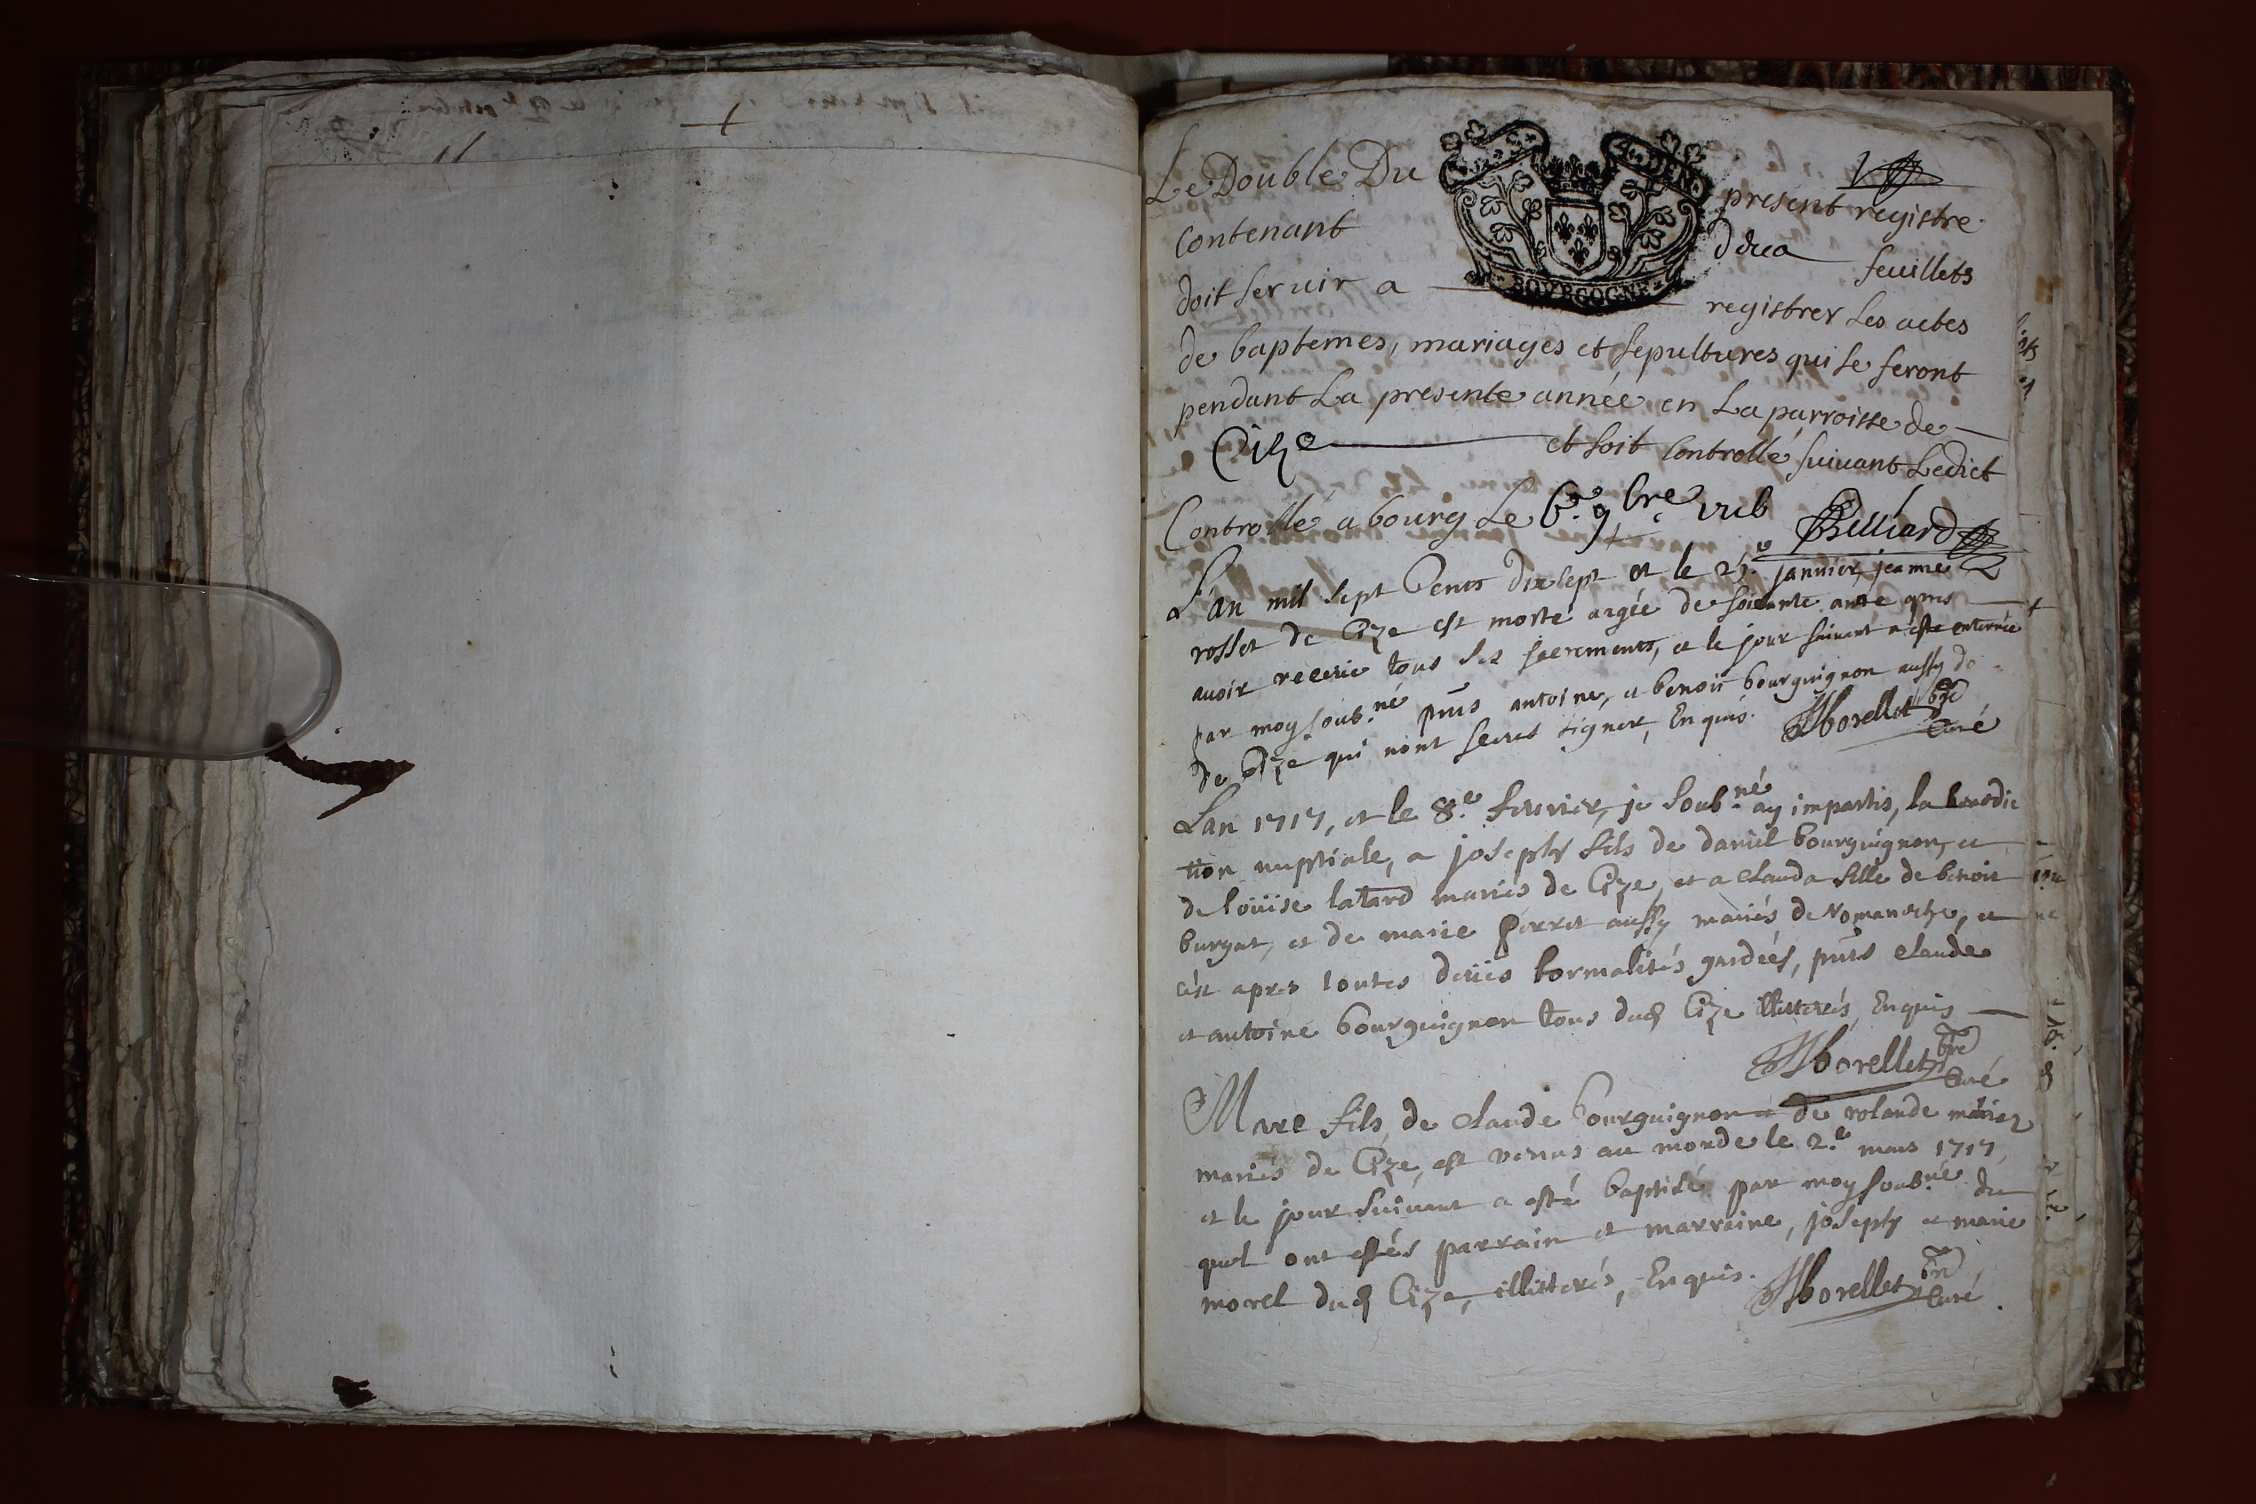 Le Double Du present registre
Contenant deux feuillets
doit servir a registrer Les actes
de baptemes, mariages et sepultures qui se feront
pendant La presente année en La parroisse de
Cize et soit Controllé suivant Ledict
Controllé a bourg Le 6.e 9bre
Billiard
L'an mil sept Cents dix sept et le 25.e janvier, jeanne
rosset de Cize est morte aagée de soixante apres
avoir receue tous ses sacrements, et le jour suivant a esté enterrée
par moy soub.né pnts antoine, et benoit bourguignon aussy de
de Cize qui n'ont sceus signer, Enquis. Morellet pbre
Curé
L'an 1717, et le 8.e fevrier, je soub.né ay impartis, la benedic
tion nuptiale, a joseph fils de daniel bourguignon, et
de loüise latard mariés de Cize, et a clauda fille de benoit
burgat, et de marie perret aussy mariés de Nomansche, et
c'est apres toutes deües formalités gardées, pnts claude
et antoine bourguignon tous dud Cize illitterés, Enquis
Morellet pbre
Curé
Marc fils de claude bourguignon et de rolande
mariés de Cize, est venus au monde le 2.e mars 1717,
et le jour suivant a esté baptisé par moy soub.né du
quel ont estés parrain et marraine, joseph et marie
morel dud Cize, illitterés, Enquis. Morellet pbre
Curé
BOURGOGNE